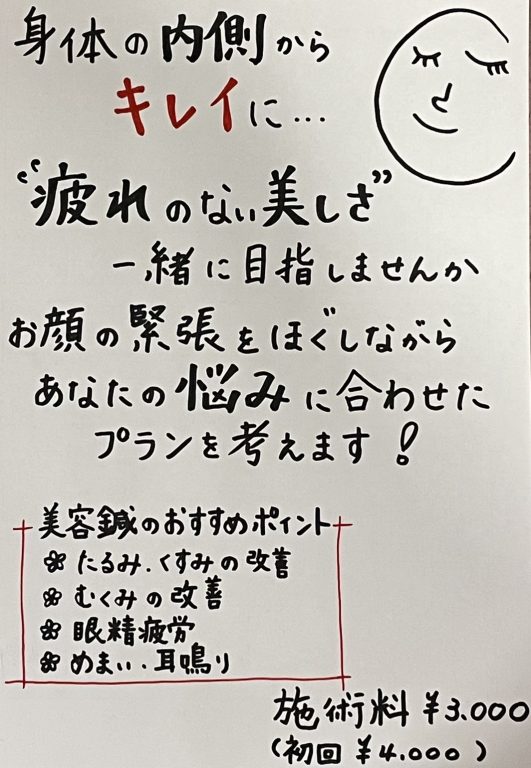 身体の内側から
キレイに…
“疲れのない美しさ”
一緒に目指しませんか
お顔の緊張をほぐしながら
あなたの悩みに合わせた
プランを考えます！
美容鍼のおすすめポイント
たるみ．くすみの改善
むくみの改善
眼精疲労
めまい．耳鳴り
施術料 ¥3.000
(初回 ¥4.000)